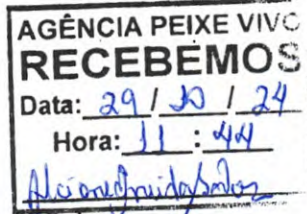 AGÊNCIA PEIXE VIVO
RECEBEMOS
Data: 29 / 10 / 24
Hora: 11 : 44